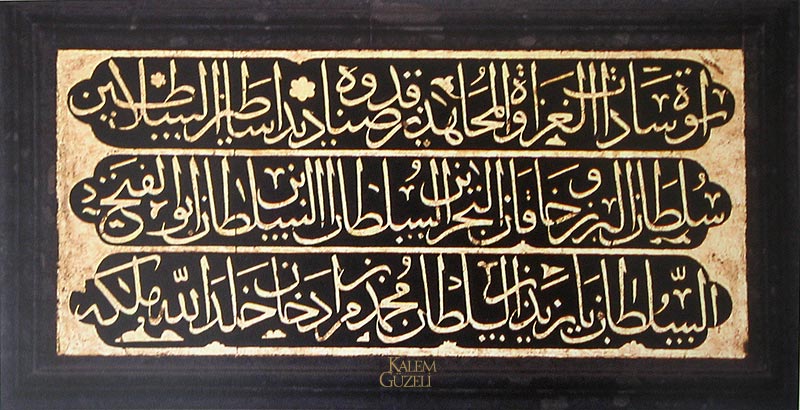 اسوة سادات الغزاة والمجاهدين قدوة صناديد اساطين السلاطين
سلطان البرين و خاقان البحرين السلطان ابن السلطان ابو الفتح
السلطان بايزيد بن السلطان محمد بن مراد خان خلد الله ملكه
KALEM
GÜZELİ